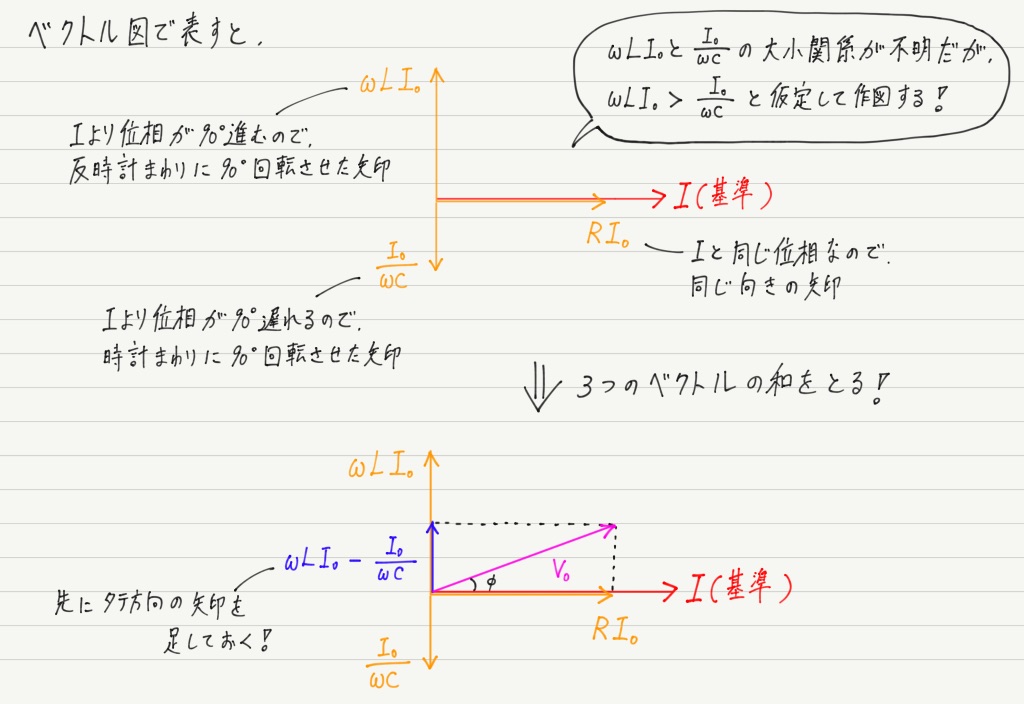 ベクトル図で表すと、
ωLI₀と I₀/ωC の大小関係が不明だが、
ωLI₀ > I₀/ωC と仮定して作図する！
ωLI₀
Iより位相が90°進むので、
反時計まわりに90°回転させた矢印
I(基準)
RI₀
Iと同じ位相なので、
同じ向きの矢印
I₀/ωC
Iより位相が90°遅れるので、
時計まわりに90°回転させた矢印
⇓ 3つのベクトルの和をとる！
ωLI₀
ωLI₀ − I₀/ωC
V₀
φ
I(基準)
先にタテ方向の矢印を
足しておく！
RI₀
I₀/ωC